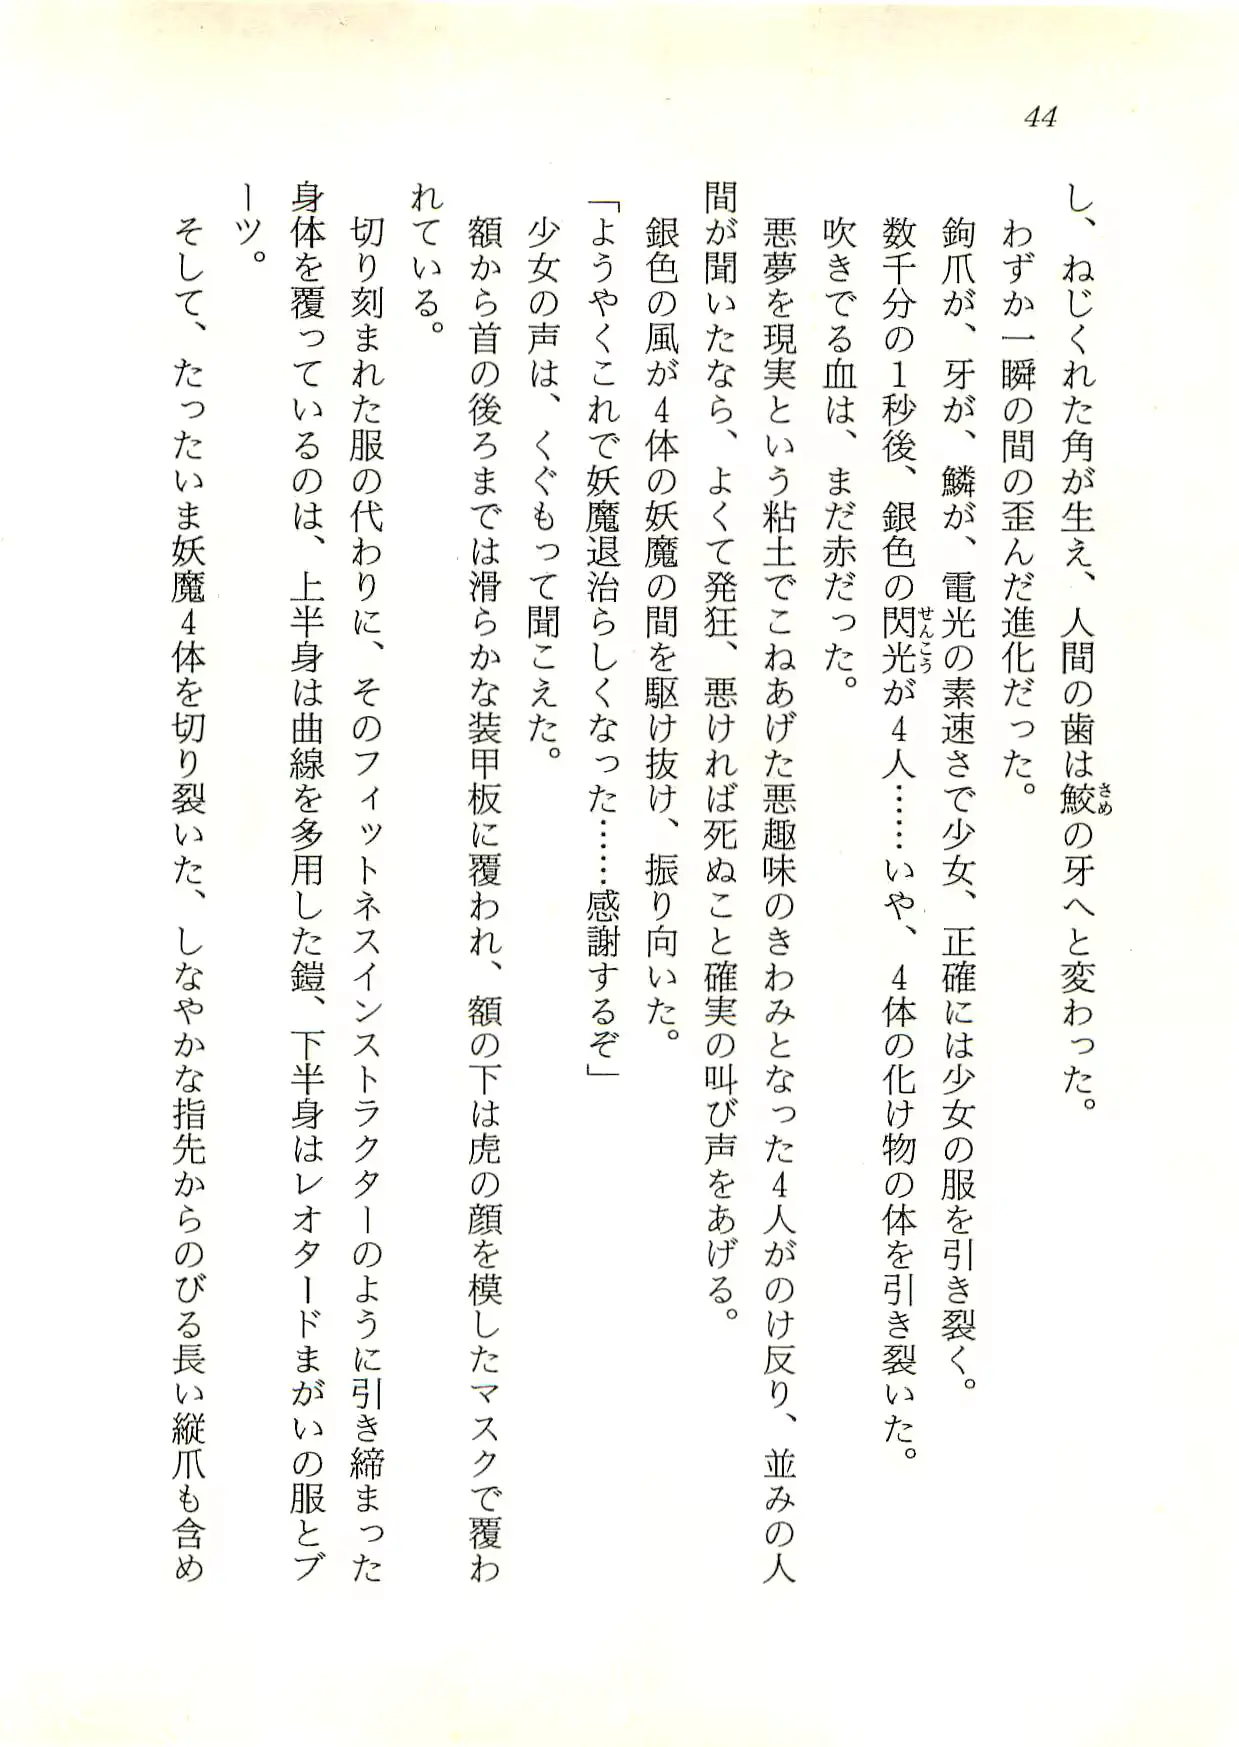 44
し、ねじくれた角が生え、人間の歯は鮫の牙へと変わった。
わずか一瞬の間の歪んだ進化だった。
鉤爪が、牙が、鱗が、電光の素速さで少女、正確には少女の服を引き裂く。
数千分の1秒後、銀色の閃光が4人……いや、4体の化け物の体を引き裂いた。
吹きでる血は、まだ赤だった。
悪夢を現実という粘土でこねあげた悪趣味のきわみとなった4人がのけ反り、並みの人
間が聞いたなら、よくて発狂、悪ければ死ぬこと確実の叫び声をあげる。
銀色の風が4体の妖魔の間を駆け抜け、振り向いた。
「ようやくこれで妖魔退治らしくなった……感謝するぞ」
少女の声は、くぐもって聞こえた。
額から首の後ろまでは滑らかな装甲板に覆われ、額の下は虎の顔を模したマスクで覆わ
れている。
切り刻まれた服の代わりに、そのフィットネスインストラクターのように引き締まった
身体を覆っているのは、上半身は曲線を多用した鎧、下半身はレオタードまがいの服とブ
ーツ。
そして、たったいま妖魔4体を切り裂いた、しなやかな指先からのびる長い縦爪も含め
さめ
せんこう